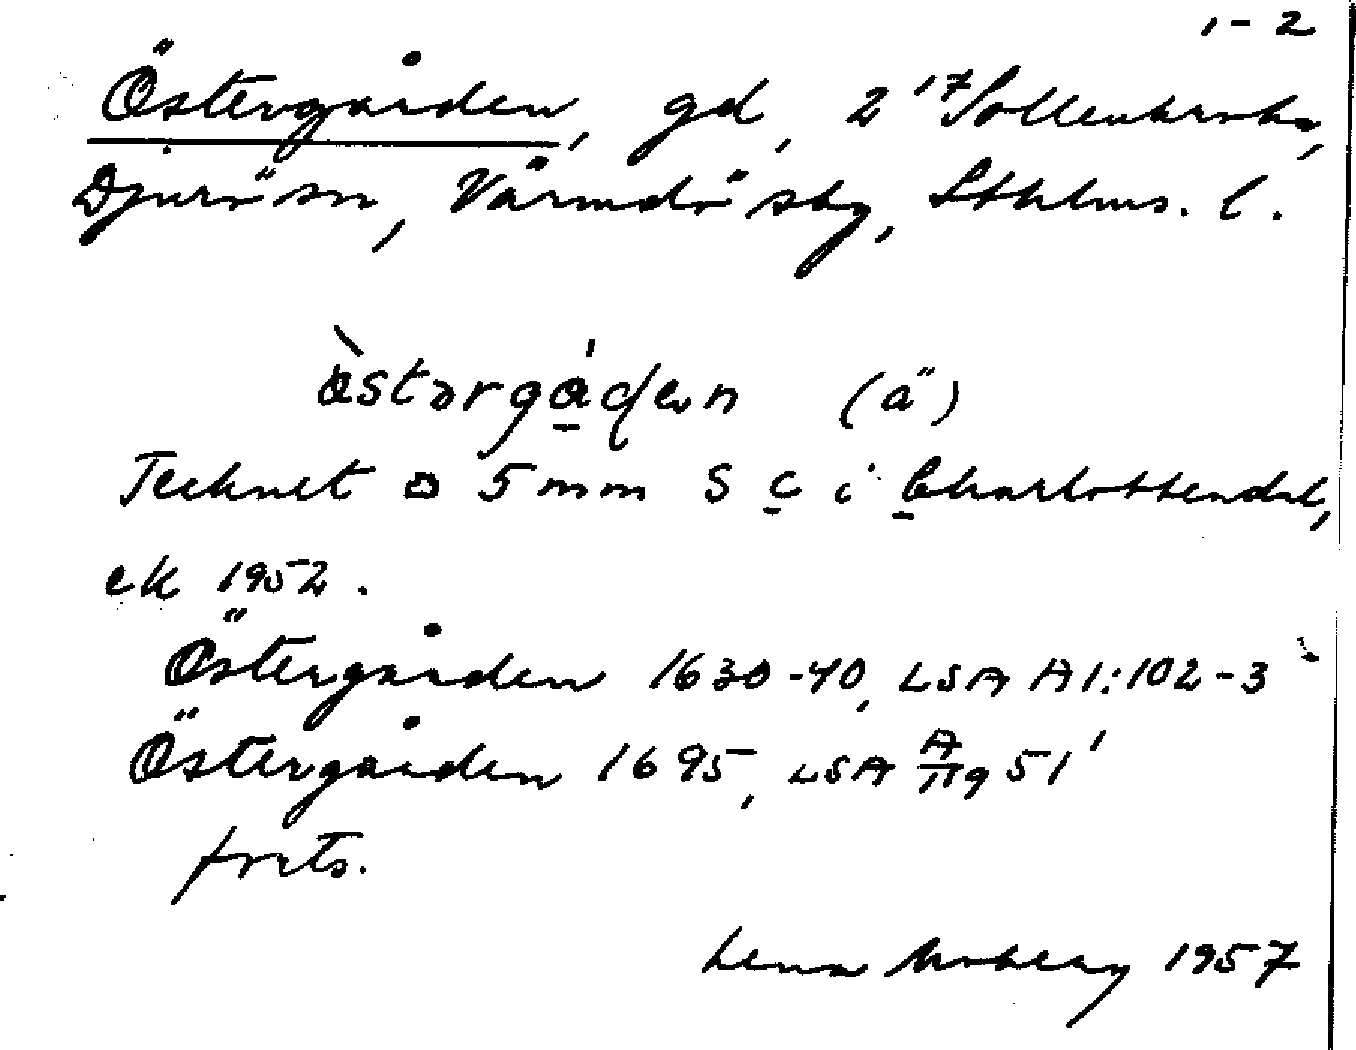 1-2
Östergården, gd, 2 17 Sollenkroka,
Djurö sn, Värmdö sbg, Sthlms. l.
(ä)
Tecknet □ 5 mm S C i Charlottendal,
ek 1952.
Östergården 1630-40, LSA A1:102-3
Östergården 1695, LSA A 51'
forts.
Lena Moberg 1957